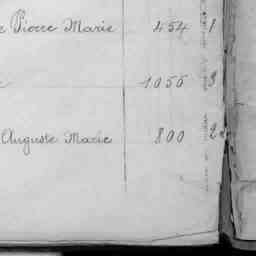 Pierre Marie 454 1
1055 3
Auguste Marie 800 2